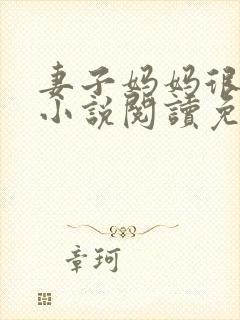 妻子妈妈很
小说閱讀免
章珂